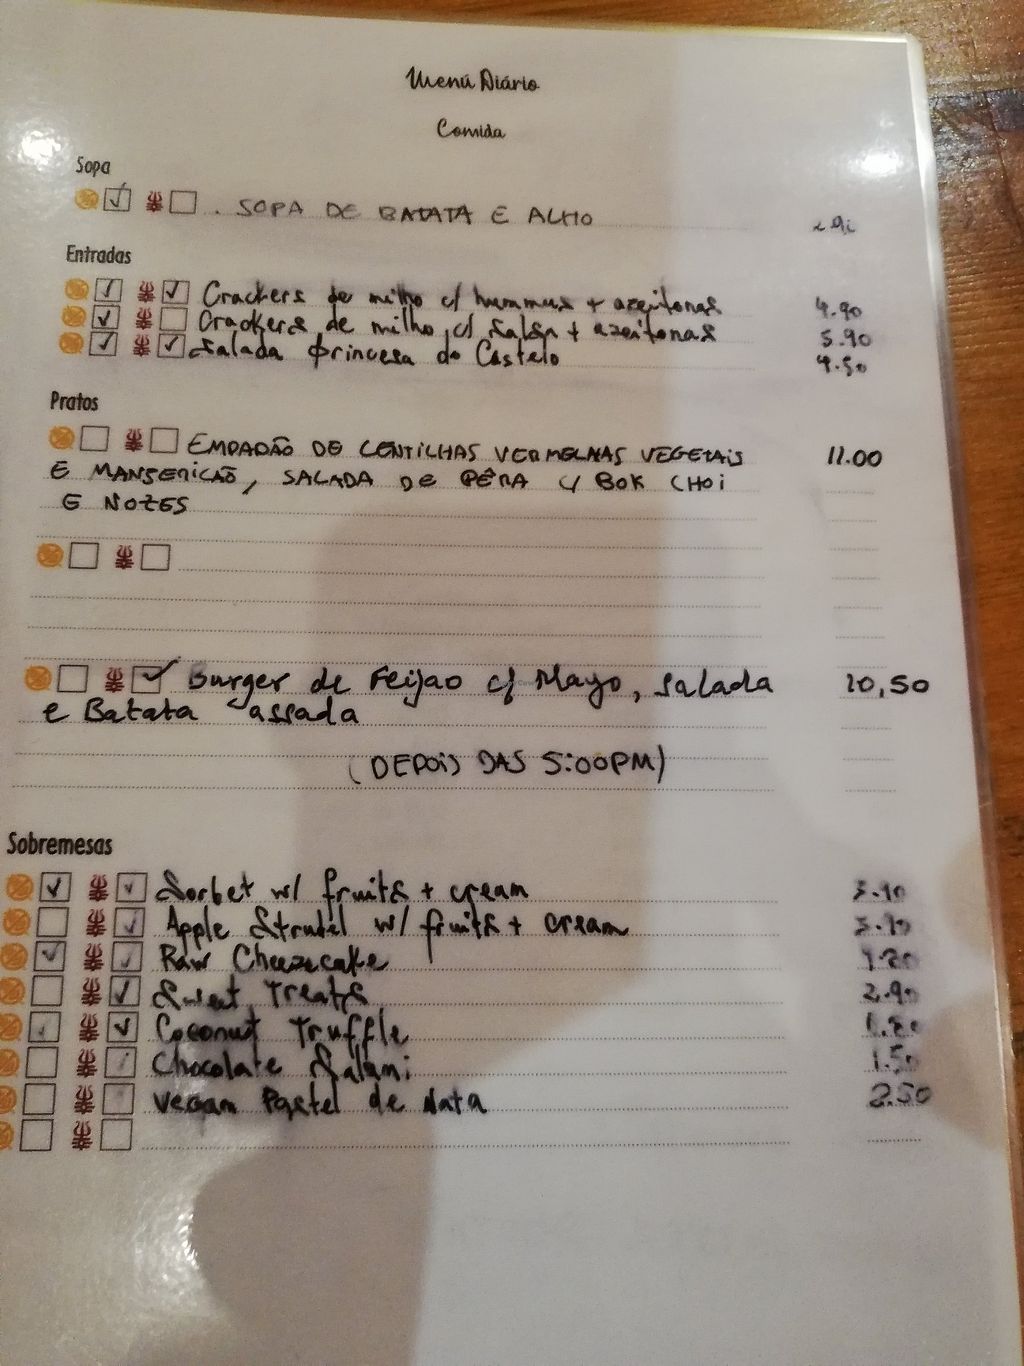 Menú Diário
Comida
Sopa
. SOPA DE BATATA E ALHO
Entradas
Crackers de milho c/ hummus + azeitonas 4.90
Crackers de milho c/ Salsa + azeitonas 5.90
Salada princesa do Castelo 9.50
Pratos
EMPADÃO DE LENTILHAS VERMELHAS VEGETAIS 11.00
E MANJERICÃO, SALADA DE PÊRA C/ BOK CHOI
E NOZES
Burger de Feijao c/ Mayo, salada 10,50
e Batata assada
(DEPOIS DAS 5:00PM)
Sobremesas
Sorbet w/ fruits + cream
Apple Strudel w/ fruits + cream
Raw Cheezecake
Sweet Treats 2.90
Coconut Truffle
Chocolate Salami 1.50
Vegan Pastel de Nata 2.50